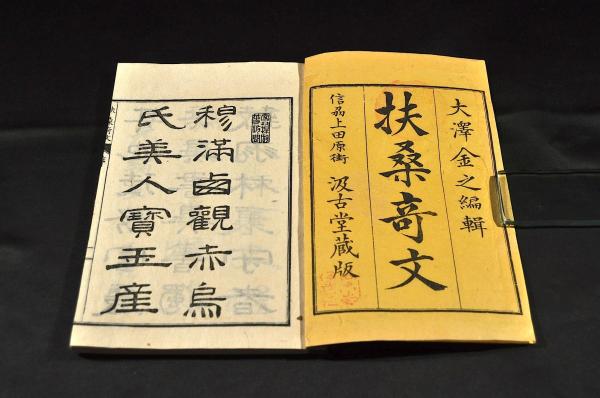 大澤金之編輯
扶桑竒文
信刕上田原街 汲古堂蔵版
穆滿鹵觀赤烏
氏美人寶玉産